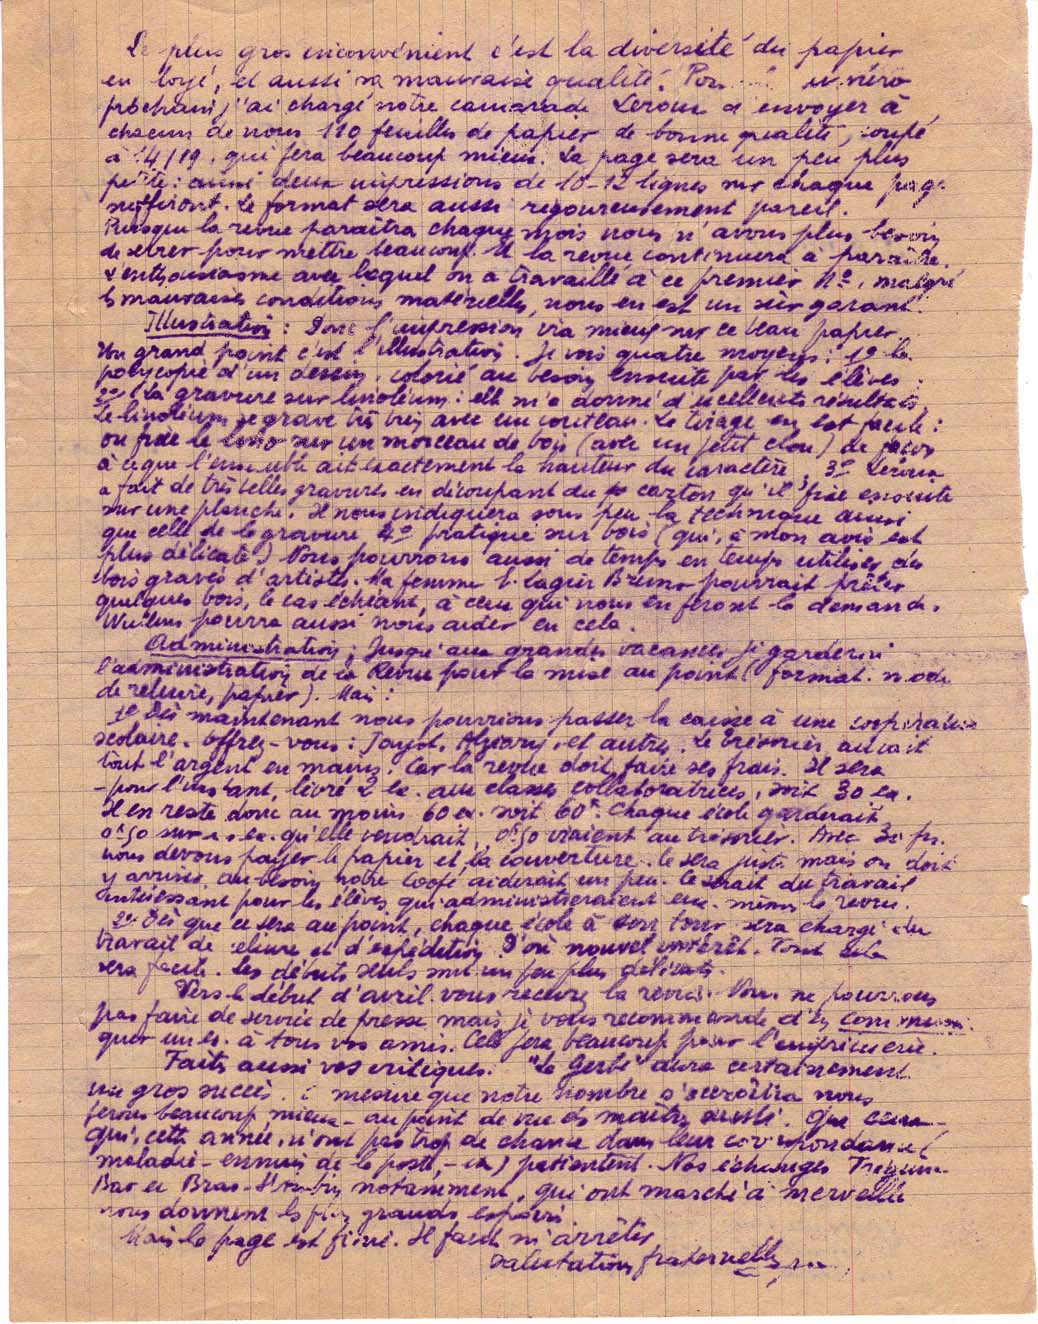 Le plus gros inconvénient c'est la diversité du papier
en loyé, et aussi sa mauvaise qualité. Pour numéro
prochain, j'ai chargé notre camarade Leroux d'envoyer à
chacun de nous 110 feuilles de papier de bonne qualité, coupé
à 14/19, qui fera beaucoup mieux. La page sera un peu plus
petite : aussi deux impressions de 10-12 lignes sur chaque page
suffiront. Le format sera aussi rigoureusement pareil.
Puisque la revue paraîtra chaque mois nous n'avons plus besoin
de serrer pour mettre beaucoup. Et la revue continuera à paraître.
L'enthousiasme avec lequel on a travaillé à ce premier Nº, malgré
les mauvaises conditions matérielles, nous en est un sûr garant.
Illustration : Donc l'impression ira mieux sur ce beau papier.
Un grand point c'est l'illustration. Je vois quatre moyens : 1º la
polycopie d'un dessin, colorié au besoin ensuite par les élèves ;
2º La gravure sur linoléum : elle m'a donné d'excellents résultats.
Le linoléum se grave très bien avec un couteau. Le tirage en est facile :
on fixe le lino sur un morceau de bois (avec un petit clou) de façon
à ce que l'ensemble ait exactement la hauteur du caractère, 3º Leroux
a fait de très belles gravures en découpant du carton qu'il fixe ensuite
sur une planche. Il nous indiquera sous peu la technique aussi
que celle de la gravure 4º pratique sur bois (qui, à mon avis est
plus délicate) Nous pourrons aussi de temps en temps utiliser des
bois gravés d'artistes. Ma femme Lagier Bruno pourrait prêter
quelques bois, le cas échéant, à ceux qui nous en feront la demande.
Wullens pourra aussi nous aider en cela.
Administration : Jusqu'aux grandes vacances je garderai
l'administration de la Revue pour la mise au point (format. mode
de reliure, papier). Mais :
1º Dès maintenant nous pourrions passer la caisse à une coopérative
scolaire. Offrez-vous : Jayot, Alziary, et autres. Le trésorier aurait
tout l'argent en mains. Car la revue doit faire ses frais. Il sera
- pour l'instant, livré 2 ex. aux classes collaboratrices, soit 30 ex.
Il en reste donc au moins 60 ex. soit 60f. Chaque école garderait
0f50 sur ex. qu'elle vendrait, 0f50 iraient au trésorier. Avec 30 frs.
nous devons payer le papier et la couverture. Ce sera juste mais on doit
y arriver. au besoin notre Coopé aiderait un peu. Ce serait du travail
intéressant pour les élèves qui administreraient eux-mêmes la revue.
2º Dès que ce sera au point, chaque école à son tour sera chargée du
travail de reliure et d'expédition. D'où nouvel intérêt. Tout cela
sera facile. Les débuts seuls sont un peu plus délicats.
Vers le début d'avril vous recevrez la revue. Nous ne pourrons
pas faire de service de presse mais je vous recommande d'en communi-
quer un ex. à tous vos amis. Cela fera beaucoup pour l'imprimerie.
Faites aussi vos critiques. "La Gerbe" aura certainement
un gros succès. à mesure que notre nombre s'accroîtra nous
ferons beaucoup mieux - au point de vue des maîtres aussi. Que ceux-
qui, cette année, n'ont pas trop de chance dans leur correspondance (
maladie - ennuis de la poste, - etc) patientent. Nos échanges Trégunc
Bar et Bras - St notamment, qui ont marché à merveille
nous donnent les plus grands espoirs.
Mais la page est finie. Il faut m'arrêter
Salutations fraternelles,